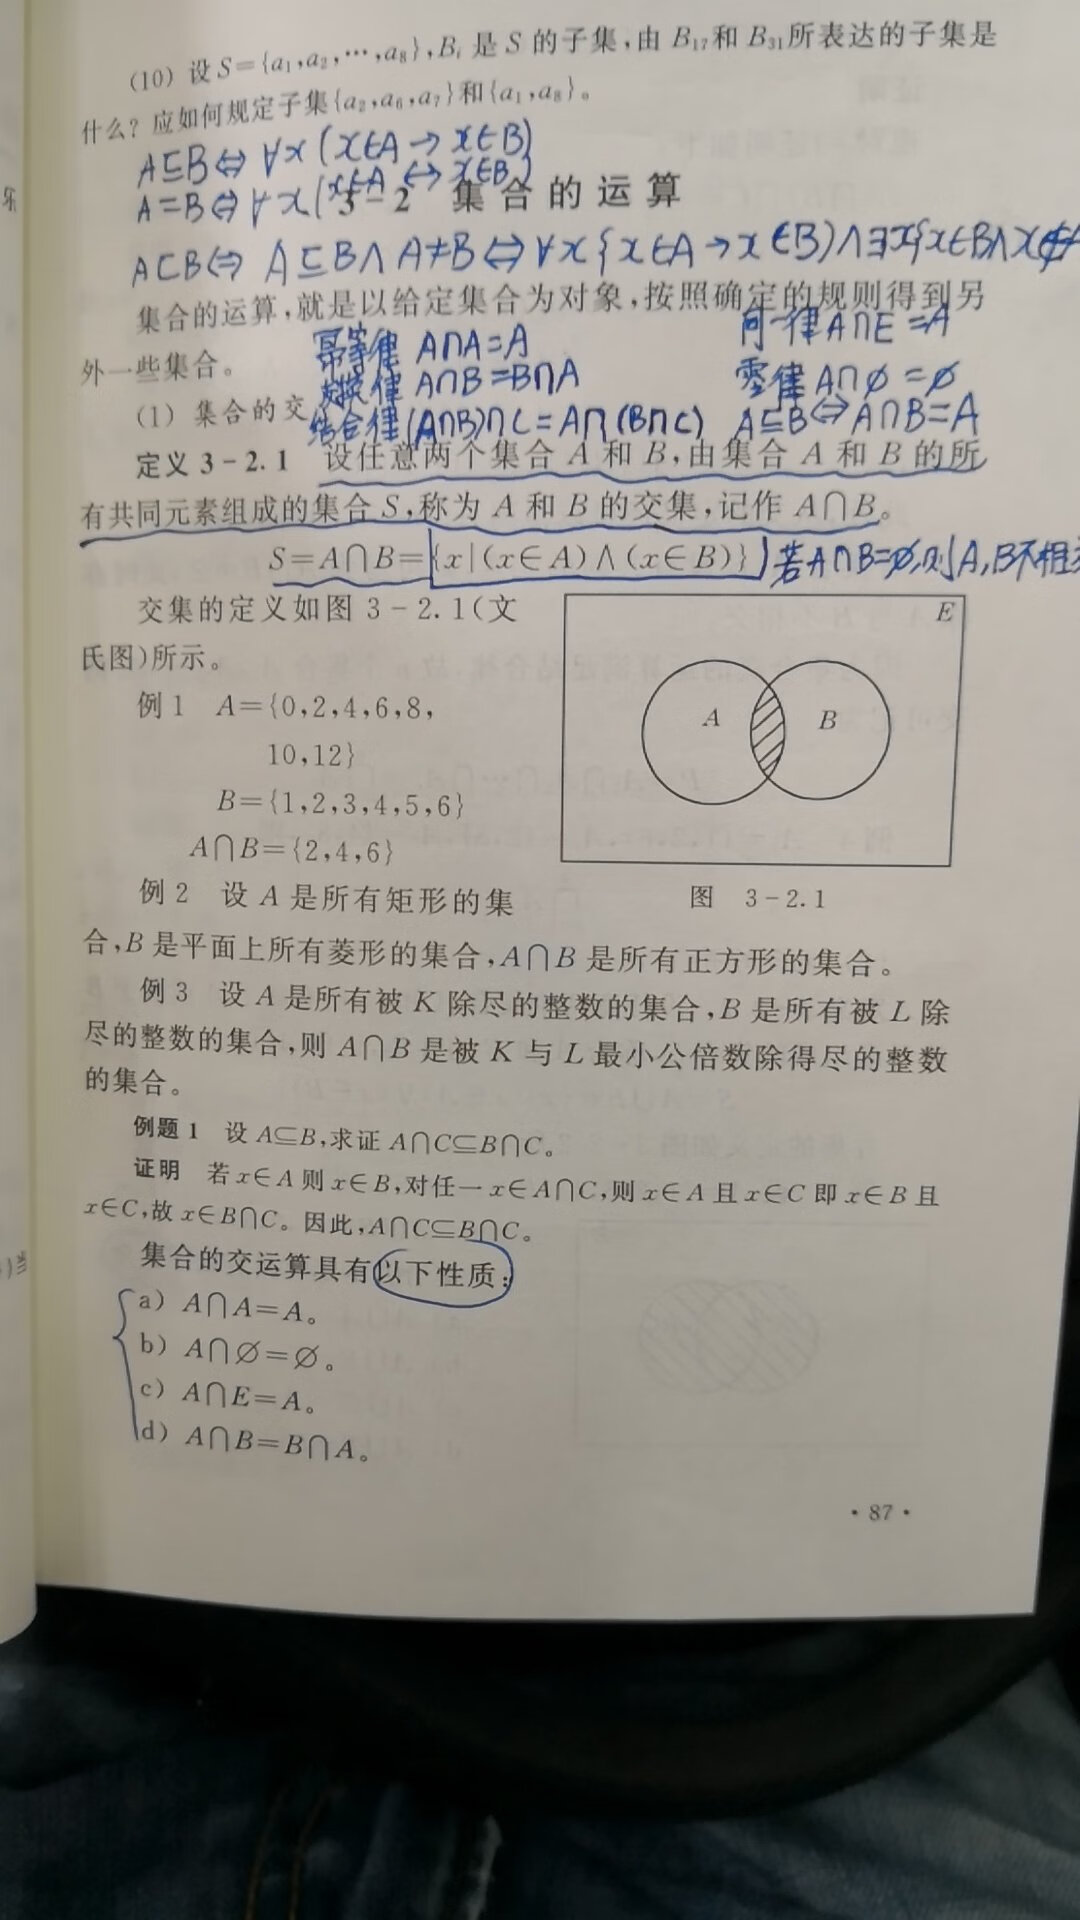 (10) 设 S={a₁,a₂,…,a₈},Bᵢ 是 S 的子集,由 B₁₇和 B₃₁所表达的子集是
什么?应如何规定子集{a₂,a₆,a₇}和{a₁,a₈}。
A⊆B⇔∀x(x∈A→x∈B)
A=B⇔∀x(x∈A↔x∈B)
3-2 集合的运算
A⊂B⇔A⊆B∧A≠B⇔∀x{x∈A→x∈B)∧∃x{x∈B∧x∉A
集合的运算,就是以给定集合为对象,按照确定的规则得到另
外一些集合。
幂等律 A∩A=A 同一律 A∩E=A
交换律 A∩B=B∩A 零律 A∩∅=∅
(1) 集合的交
结合律(A∩B)∩C=A∩(B∩C) A⊆B⇔A∩B=A
定义 3-2.1 设任意两个集合 A 和 B,由集合 A 和 B 的所
有共同元素组成的集合 S,称为 A 和 B 的交集,记作 A∩B。
S=A∩B={x|(x∈A)∧(x∈B)} 若A∩B=∅,则A,B不相交
交集的定义如图 3-2.1(文
氏图)所示。
E
A B
例 1 A={0,2,4,6,8,
10,12}
B={1,2,3,4,5,6}
A∩B={2,4,6}
图 3-2.1
例 2 设 A 是所有矩形的集
合,B 是平面上所有菱形的集合,A∩B 是所有正方形的集合。
例 3 设 A 是所有被 K 除尽的整数的集合,B 是所有被 L 除
尽的整数的集合,则 A∩B 是被 K 与 L 最小公倍数除得尽的整数
的集合。
例题 1 设 A⊆B,求证 A∩C⊆B∩C。
证明 若 x∈A 则 x∈B,对任一 x∈A∩C,则 x∈A 且 x∈C 即 x∈B 且
x∈C,故 x∈B∩C。因此,A∩C⊆B∩C。
集合的交运算具有以下性质:
a) A∩A=A。
b) A∩∅=∅。
c) A∩E=A。
d) A∩B=B∩A。
·87·